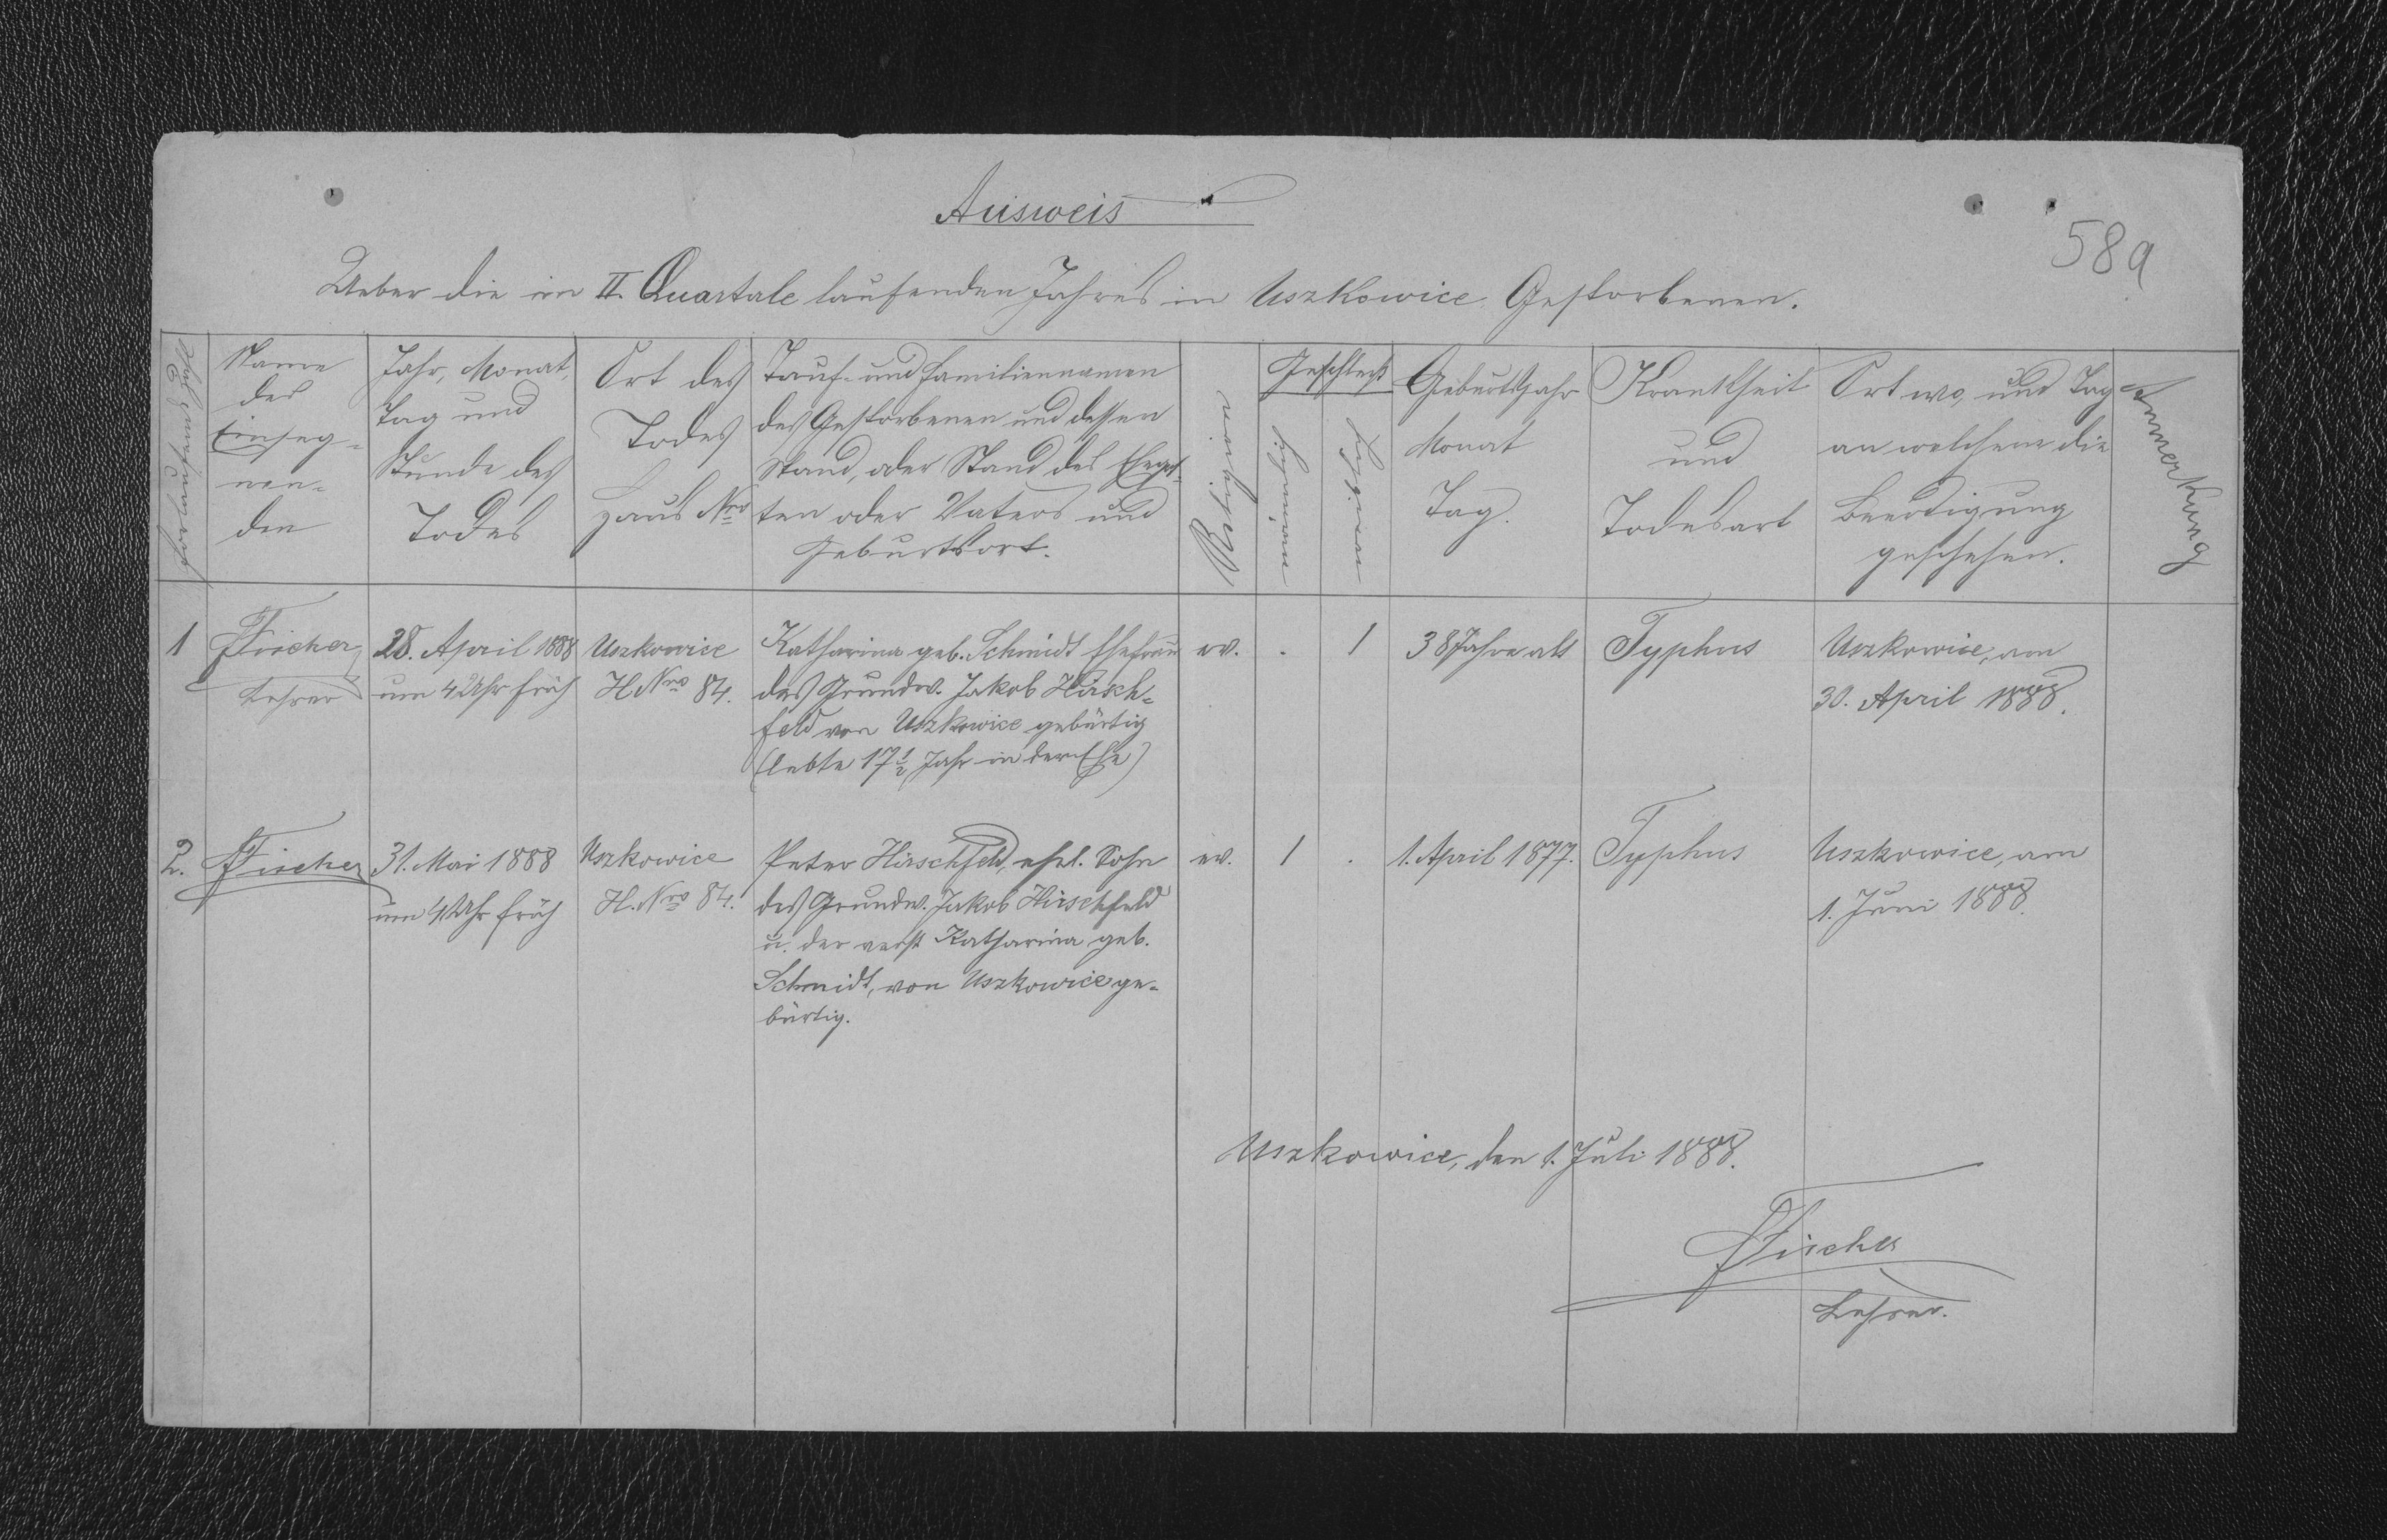 Ausweis
589
Ueber die im II. Quartale laufenden Jahres in Uszkowice Gestorbenen.
Fortlaufende Zahl
Name
des
Einseg-
nen-
den
Jahr, Monat,
Tag und
Stunde des
Todes
Ort des
Todes
Haus Nro
Tauf- und Familiennamen
des Gestorbenen und dessen
Stand, oder Stand des Ehegat-
ten oder Vaters und
Geburtsort.
Religion
Geschlecht
männlich
weiblich
Geburtsjahr
Monat
Tag.
Krankheit
und
Todesart
Ort wo, und Tag
an welchem die
Beerdigung
geschehen.
Anmerkung
1
Fischer,
Lehrer
28. April 1888
um 4 Uhr früh
Uszkowice
H Nro 84.
Katharina geb. Schmidt Ehefrau
des Grundw. Jakob Hirsch-
feld von Uszkowice gebürtig
(lebte 17 1/2 Jahr in der Ehe)
ev.
.
1
38 Jahre alt
Typhus
Uszkowice, am
30. April 1888.
2.
Fischer
31. Mai 1888
um 4 Uhr früh
Uszkowice
H. Nro 84.
Peter Hirschfeld, ehel. Sohn
des Grundw. Jakob Hirschfeld
u. der verst Katharina geb.
Schmidt, von Uszkowice ge-
bürtig.
ev.
1
.
1. April 1877.
Typhus
Uszkowice, am
1. Juni 1888.
Uszkowice, den 1. Juli 1888.
Fischer
Lehrer.